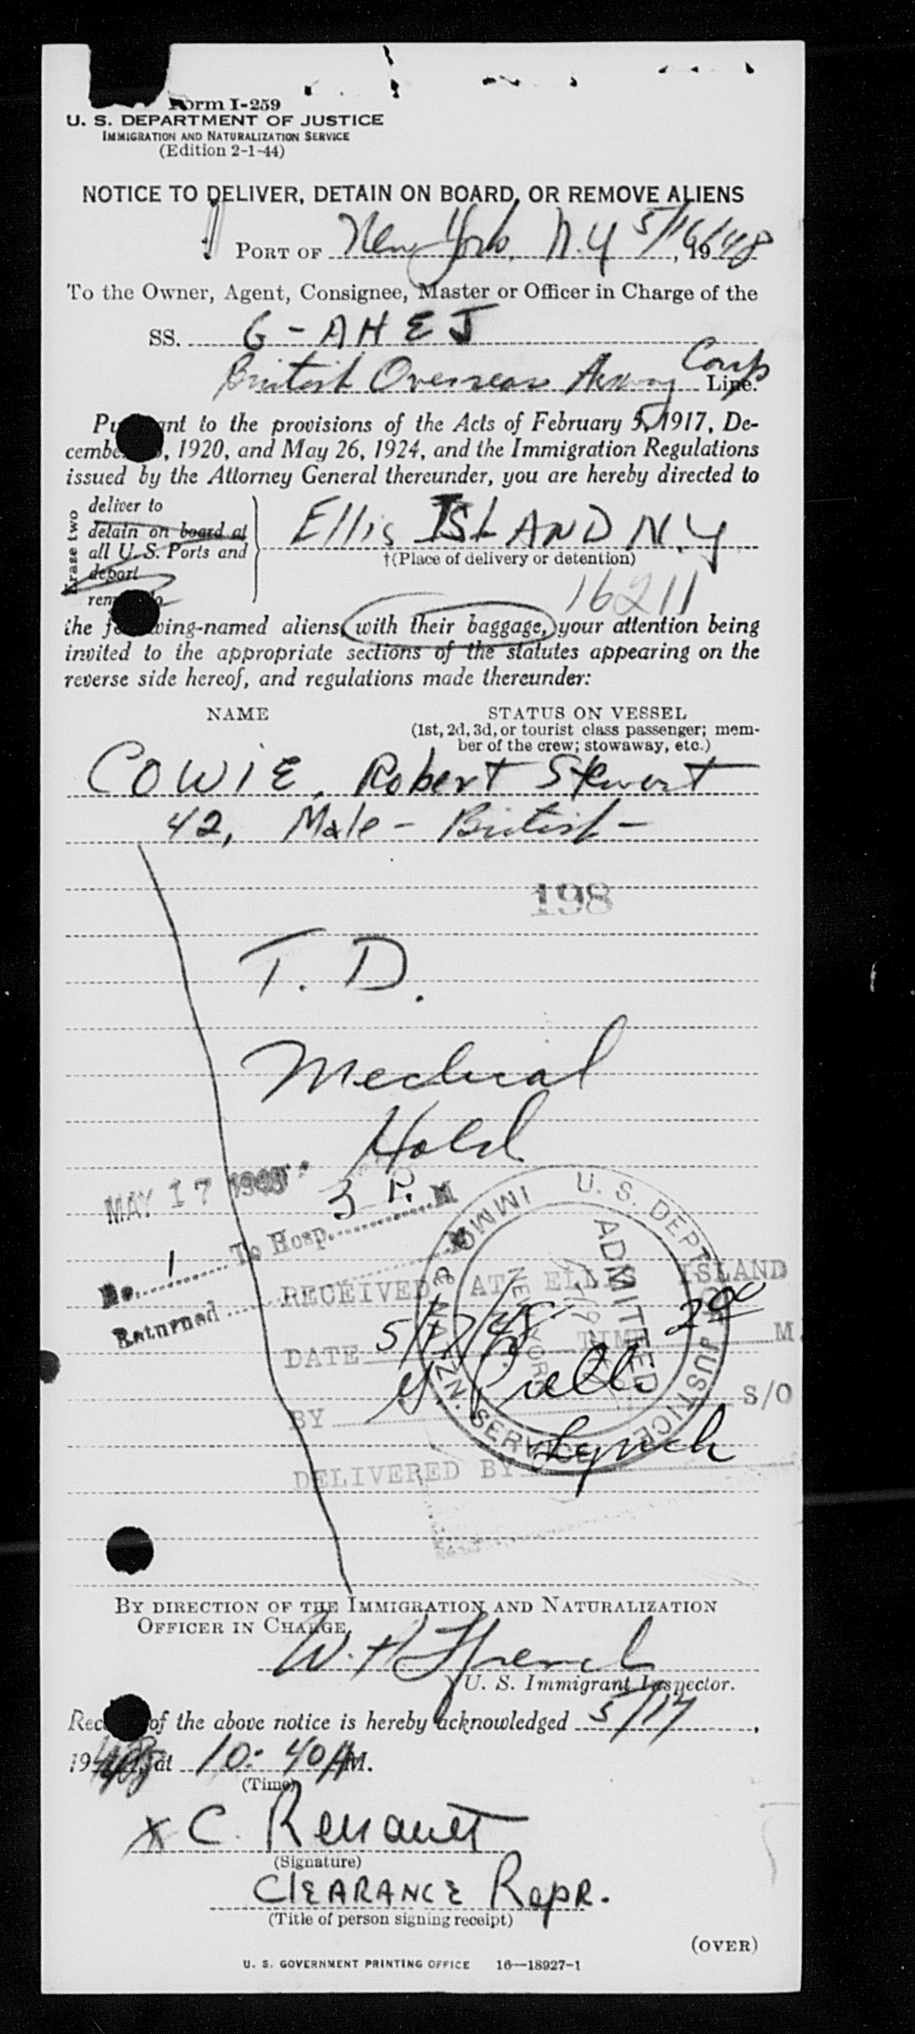 Form I-259
U. S. DEPARTMENT OF JUSTICE
IMMIGRATION AND NATURALIZATION SERVICE
(Edition 2-1-44)
NOTICE TO DELIVER, DETAIN ON BOARD, OR REMOVE ALIENS
PORT OF New York, N.Y 5/16/48, 19
To the Owner, Agent, Consignee, Master or Officer in Charge of the
SS. G-AHEJ
British Overseas Airway Corp Line.
Pursuant to the provisions of the Acts of February 5, 1917, De-
cember , 1920, and May 26, 1924, and the Immigration Regulations
issued by the Attorney General thereunder, you are hereby directed to
Erase two
deliver to
detain on board at
all U. S. Ports and
deport
remove to
Ellis ISLAND N.Y
†(Place of delivery or detention)
16211
the following-named aliens, with their baggage, your attention being
invited to the appropriate sections of the statutes appearing on the
reverse side hereof, and regulations made thereunder:
NAME
STATUS ON VESSEL
(1st, 2d, 3d, or tourist class passenger; mem-
ber of the crew; stowaway, etc.)
COWIE, Robert Stewart
42, Male - British -
198
T. D.
Medical
Hold
MAY 17 1948
No. 1 To Hosp. 3 P. M
Returned
U. S. DEPT. OF JUSTICE
IMMIG. & NATZN. SERVICE
ADMITTED
NEW YORK
RECEIVED AT ELLIS ISLAND
DATE 5/17/48 TIME 2 00 M.
BY S/O
DELIVERED BY Lynch
BY DIRECTION OF THE IMMIGRATION AND NATURALIZATION
OFFICER IN CHARGE,
W. H.
U. S. Immigrant Inspector.
Receipt of the above notice is hereby acknowledged 5/17,
1948, at 10:40 AM.
(Time)
x C. Renault
(Signature)
CLEARANCE Repr.
(Title of person signing receipt)
(OVER)
U. S. GOVERNMENT PRINTING OFFICE 16—18927-1